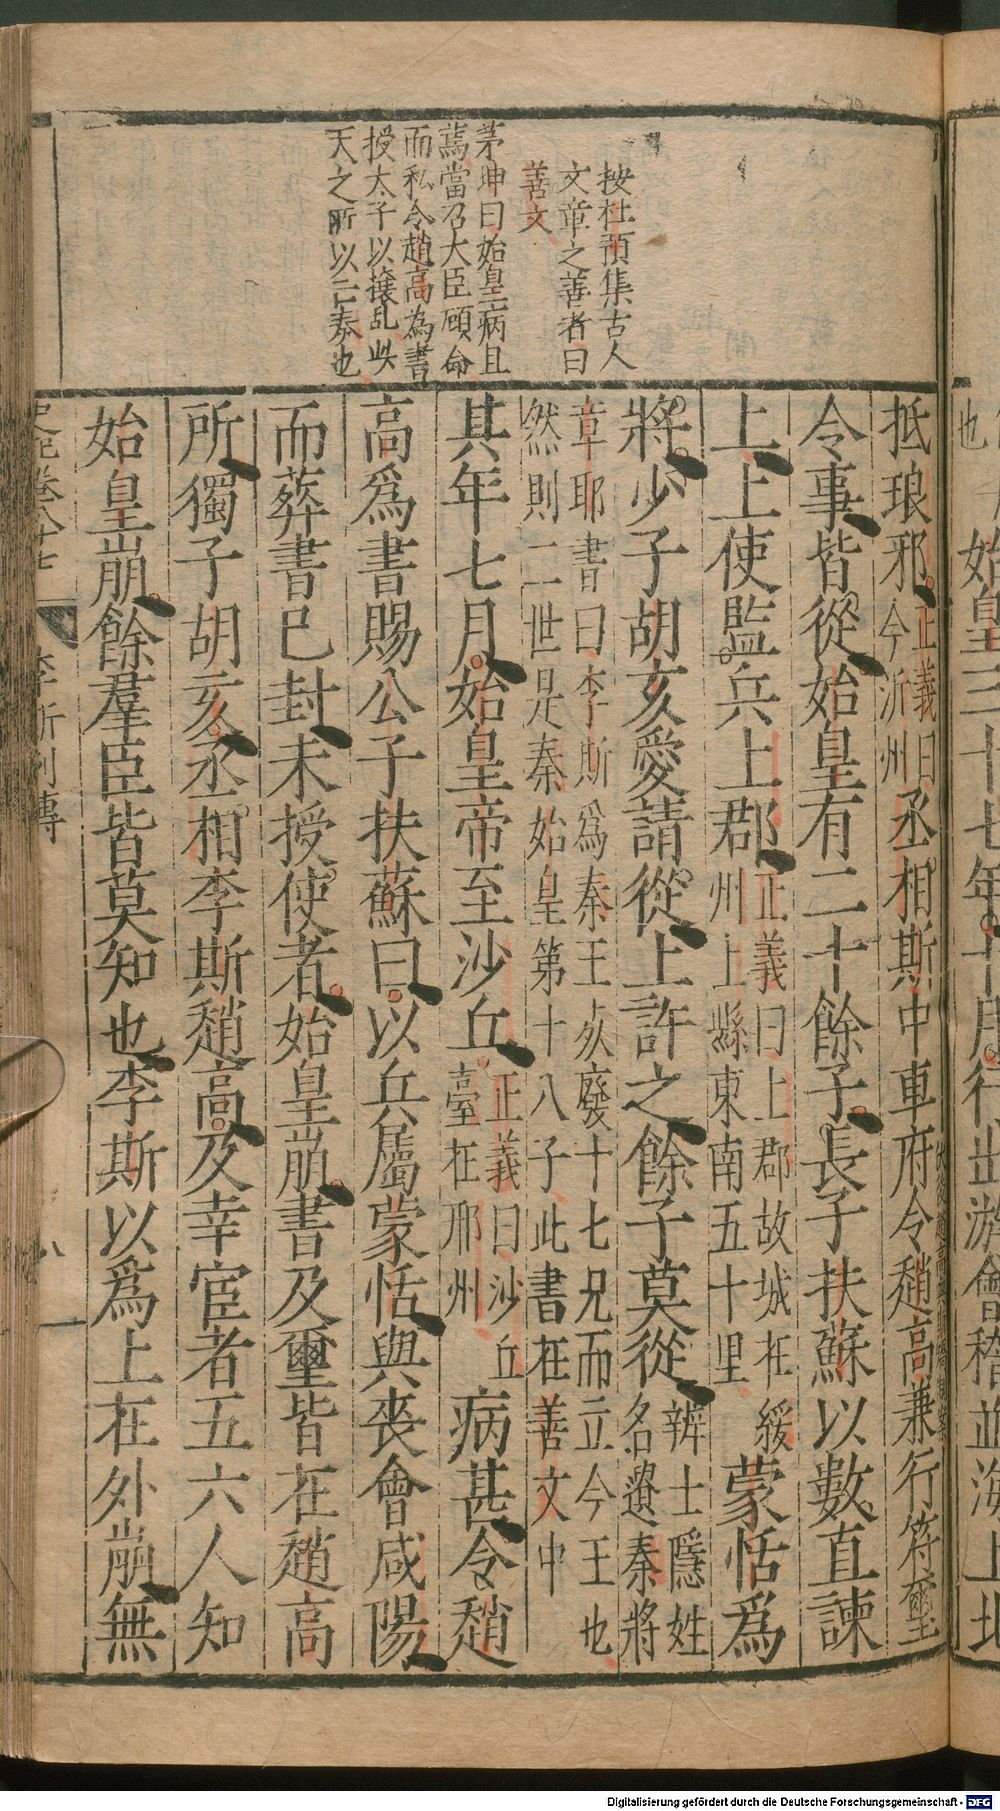 按杜預集古人
文章之善者曰
善文
茅坤曰始皇病且
焉當召大臣顧命
而私令趙高為書
授太子以攘乱此
天之所以亡秦也
始皇三十七年十月行出游會稽並海上北
也
抵琅邪正義曰今沂州丞相斯中車府令趙高兼行符璽
令事皆從始皇有二十餘子長子扶蘇以數直諫
上上使監兵上郡正義曰上郡故城在綏州上縣東南五十里蒙恬爲
將少子胡亥愛請從上許之餘子莫從辨士隱姓名遺秦將
章耶書曰李斯爲秦王死廢十七兄而立今王也
然則二世是秦始皇第十八子此書在善文中
其年七月始皇帝至沙丘正義曰沙丘臺在邢州病甚令趙
高爲書賜公子扶蘇曰以兵屬蒙恬與喪會咸陽
而葬書已封未授使者始皇崩書及璽皆在趙高
所獨子胡亥丞相李斯趙高及幸宦者五六人知
始皇崩餘羣臣皆莫知也李斯以爲上在外崩無
史記卷八十七 李斯列傳 八
Digitalisierung gefördert durch die Deutsche Forschungsgemeinschaft - DFG